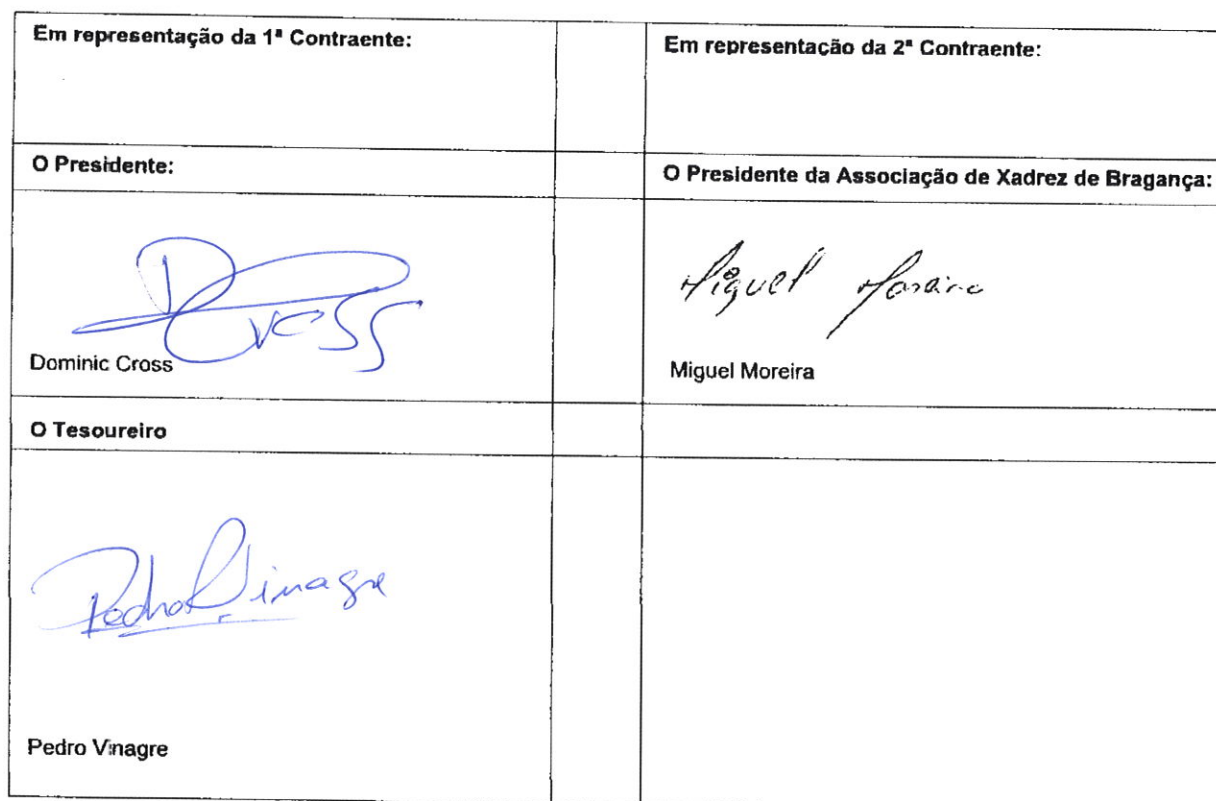 Em representação da 1ª Contraente:
Em representação da 2ª Contraente:
O Presidente:
O Presidente da Associação de Xadrez de Bragança:
D Cross
Miguel Moreira
Dominic Cross
Miguel Moreira
O Tesoureiro
Pedro Vinagre
Pedro Vinagre